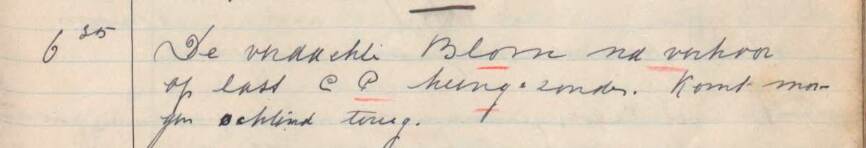 6 35 De verdachte Blom na verhoor
op last C P heengezonden. Komt mor-
gen ochtend terug.